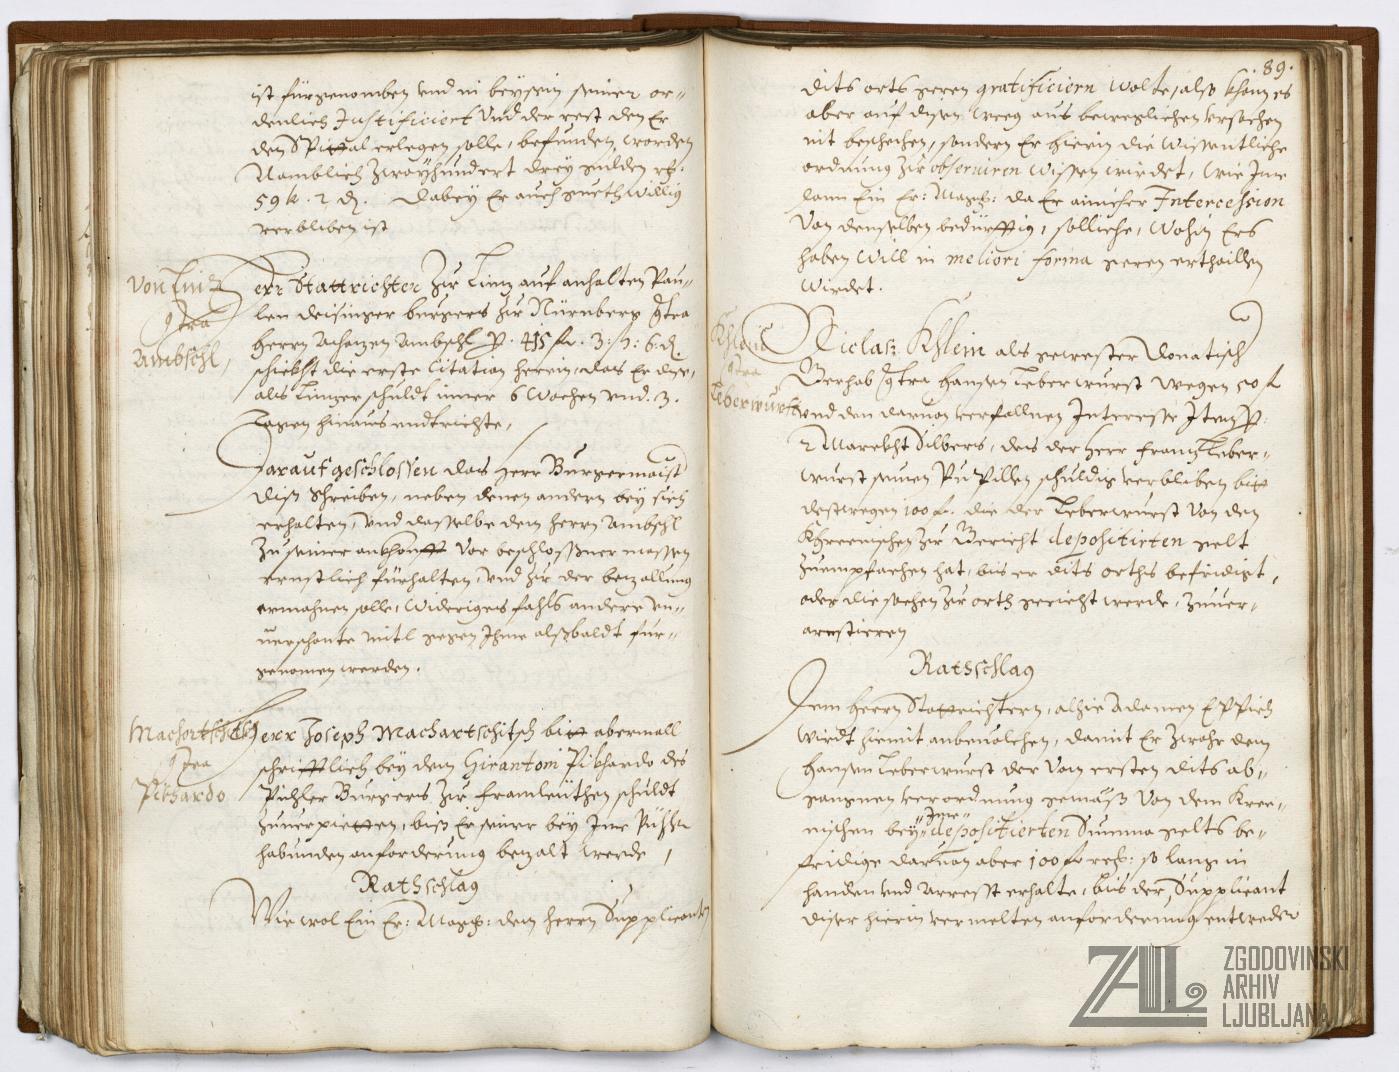 ist fürgenomben und in beysein seiner or-
denlich Justificiert Und der rest den Er
den Spittal erlegen solle, befunden worden
Namblich zwayhundert drey gulden
59 k. 2 d. Dabey Er auch guethwillig
verbliben ist
Von Linz
contra
Ambschl,
Herr Stattrichter zu Linz auf anhalten Pau-
len deisinger burgers zu Nürnberg contra
Herrn Ambschl p. 415 fl. 3: 6 d.
schickht die erste Citation herein, das Er dise,
als Linzer schuldt inner 6 Wochen und .3.
Tagen hinaus endtrichte,
Darauf geschlossen das Herr Burgermaister
diß schreiben, neben denen andern bey sich
erhalten, Und dasselbe dem Herrn Ambschl
zu seiner ankhonfft Vor beschlossner massen
ernstlich fürhalten, Und zu der bezallung
ermahnen solle, Widerigens fahls andere un-
verschonte mitl gegen Ihme alßbaldt für-
genomen werden.
Machortschitsch
contra
Pikhardo
Herr Joseph Machartschitsch bitt abermall
schrifftlich bey dem Girantoni Pikhardo des
Pichler Burgers zu schuldt
zuverpietten, biß Er seiner bey Ime Pichler
habunden anforderung bezalt werde,
Rathschlag
Wie wol Ein Er: Mag: dem Herrn Supplicanten
. 89.
dits orts geren gratificiern wolte, also khan es
aber auf disen weeg aus beweglichen Ursachen
nit beschehen, sondern Er hierin die wissentliche
ordnung zu observiren wissen wirdet, wie Ime
dann Ein Er: Mag: da Er ainicher Intercession
Von denselben bedürfftig, solliche, wohin Ers
haben will in meliori forma geren erthaillen
wirdet.
Khlein
contra
Leberwurst
Niclas Khlein als gewester Donatisch
Gerhab contra Hansen Leberwurst wegen 50 fl
und den davon verfallnen Interesse Item p.
2 Marckht Silbers, des der Herr Franz Leber-
wurst seinen Pupillen schuldig verbliben bitt
destwegen 100 fl. die der Leberwurst Von den
Khreenischen zu Gericht depositirten gelt
zuempfachen hat, bis er dits orths befridigt,
oder die sachen zu orth gericht werde, zuver-
arrestieren
Rathschlag
Dem Herrn Stattrichtern, alhie Adamen Eppich
wirdt hiemit anbevolchen, damit Er zwahr dem
Hansen Leberwurst der Vom ersten dits ab-
gangnen verordnung gemäß Von dem Kree-
nischen bey Ime depositierten Summa gelts be-
fridige davon aber 100 fl so lang in
handen und Arresst erhalte, bis der Supplicant
diser hierin vermelten anforderung entweder
ZAL
ZGODOVINSKI
ARHIV
LJUBLJANA